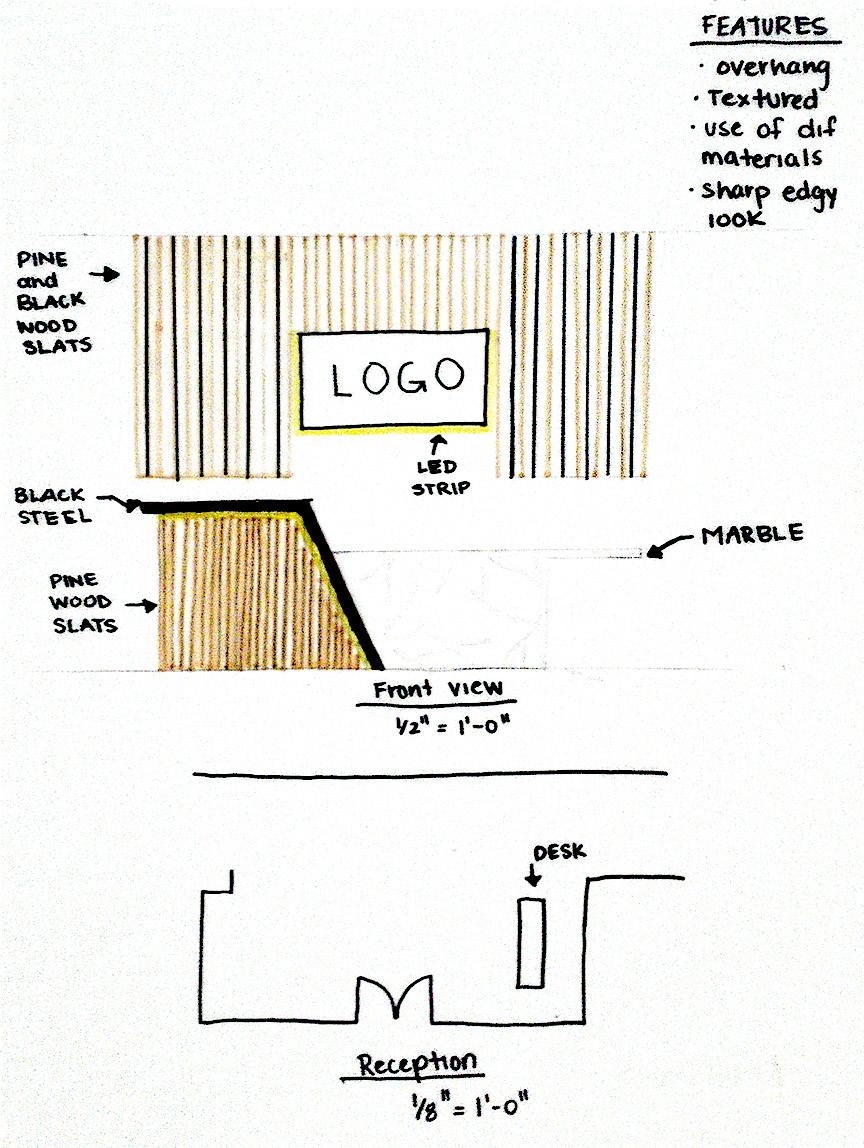 FEATURES
· overhang
· Textured
· use of dif
materials
· sharp edgy
look
PINE
and
BLACK
WOOD
SLATS
LOGO
LED
STRIP
BLACK
STEEL
MARBLE
PINE
WOOD
SLATS
Front view
1/2" = 1'-0"
DESK
Reception
1/8" = 1'-0"